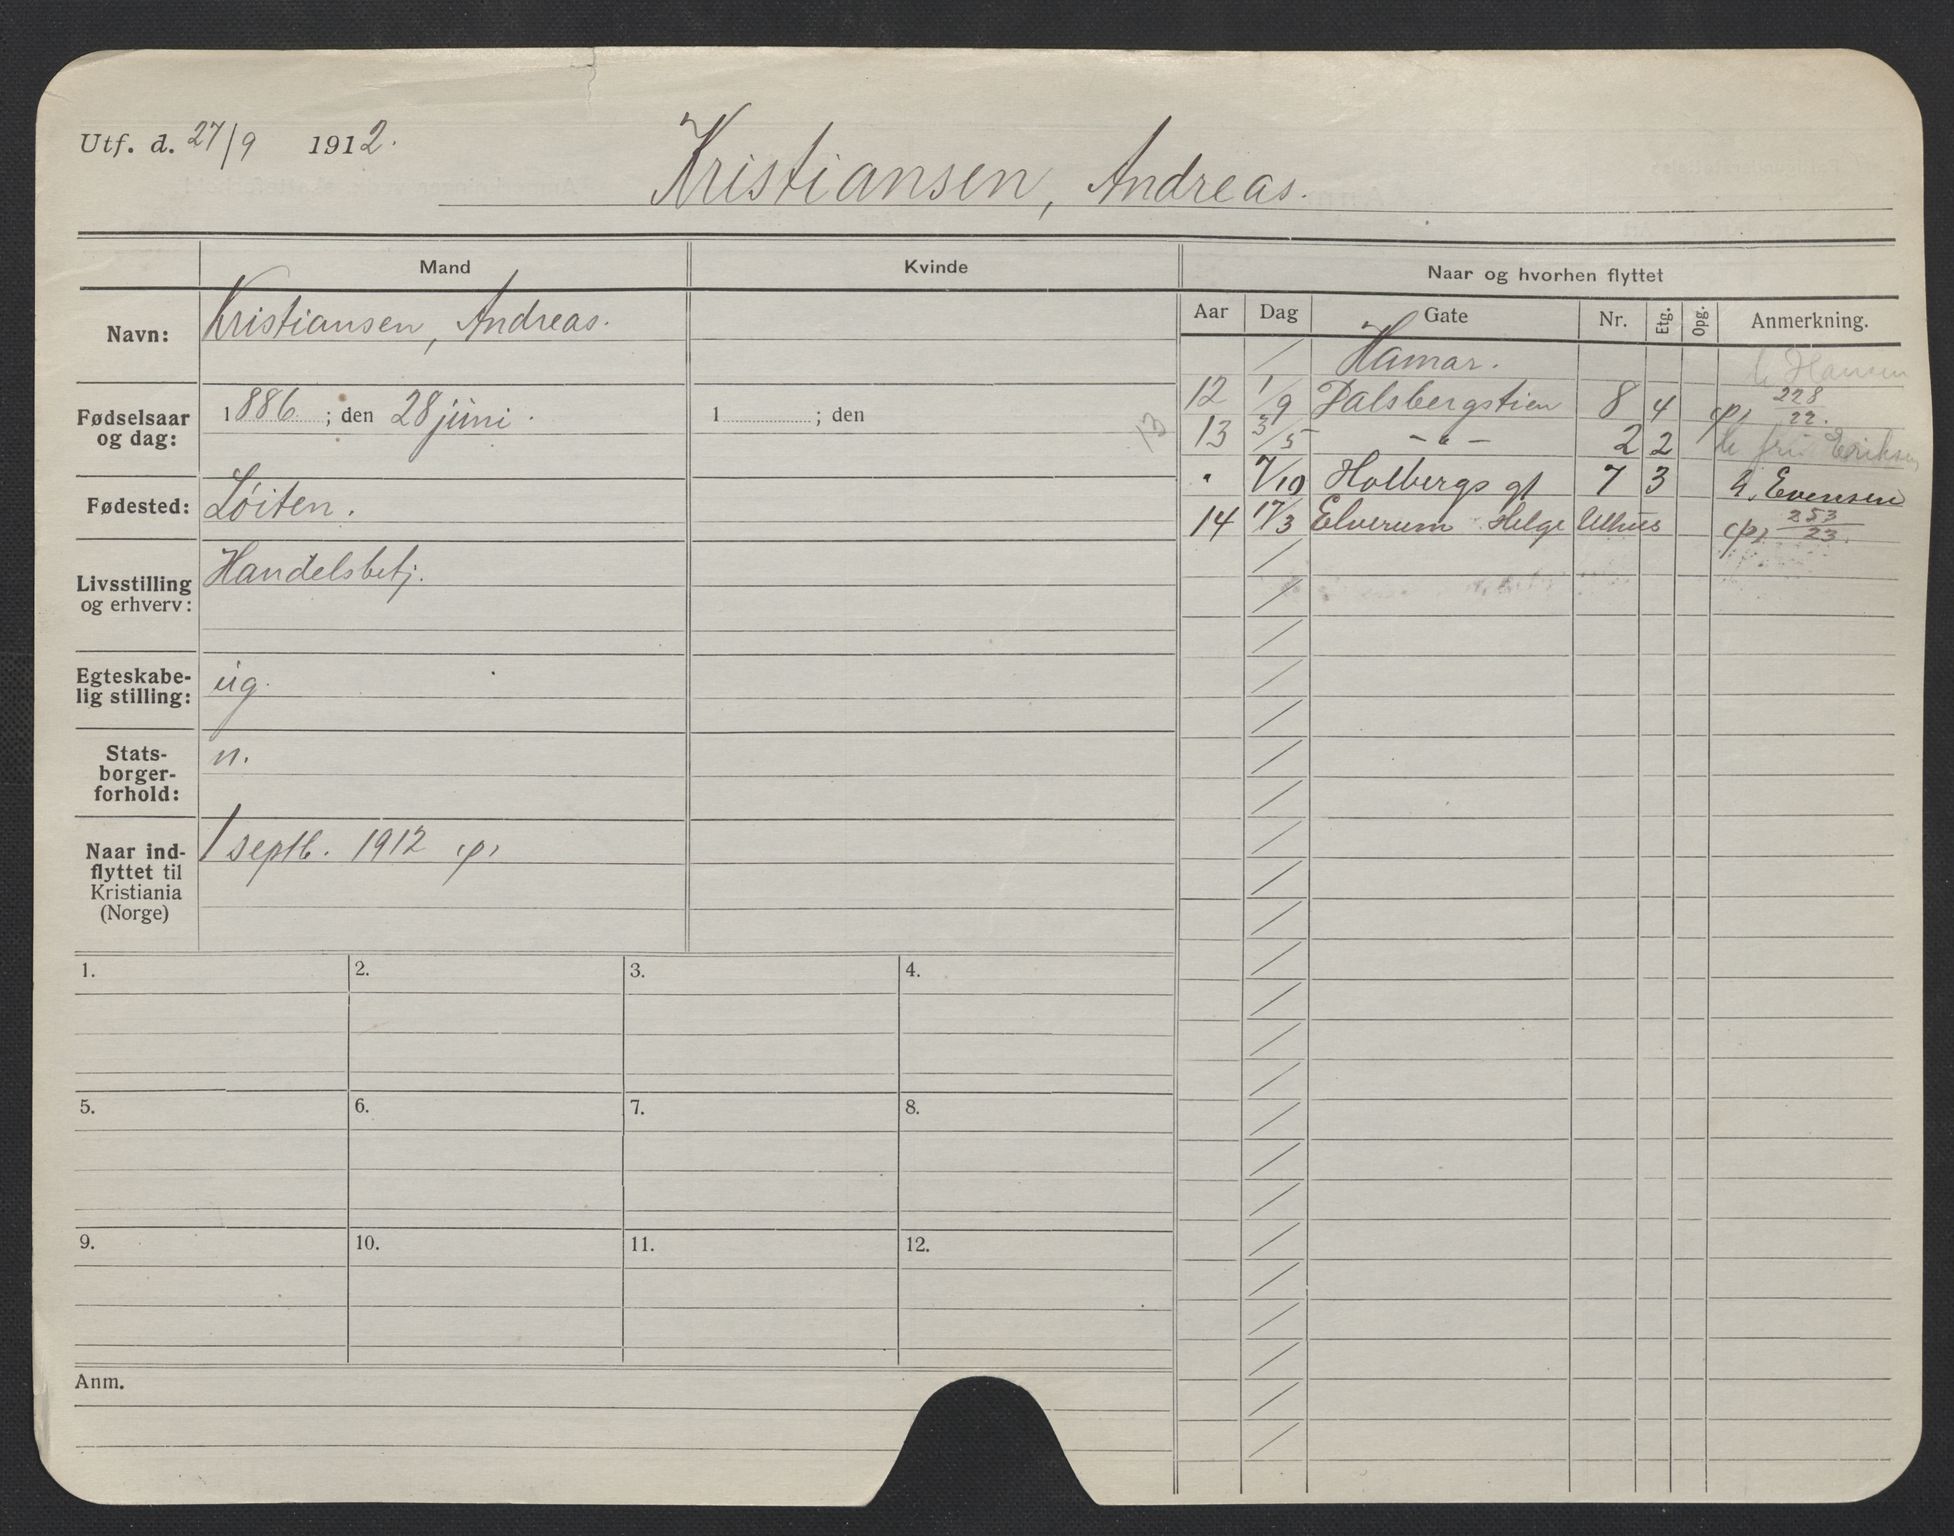 Utf. d. 27/9 1912.
Kristiansen, Andreas.
Mand
Kvinde
Navn: Kristiansen, Andreas.
Fødselsaar og dag: 1886 ; den 28 juni.
1 ; den
13
Fødested: Løiten.
Livsstilling og erhverv: Handelsbetj.
Egteskabelig stilling: ug.
Statsborgerforhold: n.
Naar indflyttet til Kristiania (Norge) 1 septb. 1912 (p)
1. 2. 3. 4.
5. 6. 7. 8.
9. 10. 11. 12.
Anm.
Naar og hvorhen flyttet
Aar Dag Gate Nr. Etg. Opg. Anmerkning.
/ Hamar. Hansen
12 1/9 Dalsbergstien 8 4 (p) 228/22.
13 3/5 – " – 2 2 Eriksen
" 7/10 Holbergs gt 7 3 h. Evensen
14 17/3 Elverum Helge (p) 253/23.